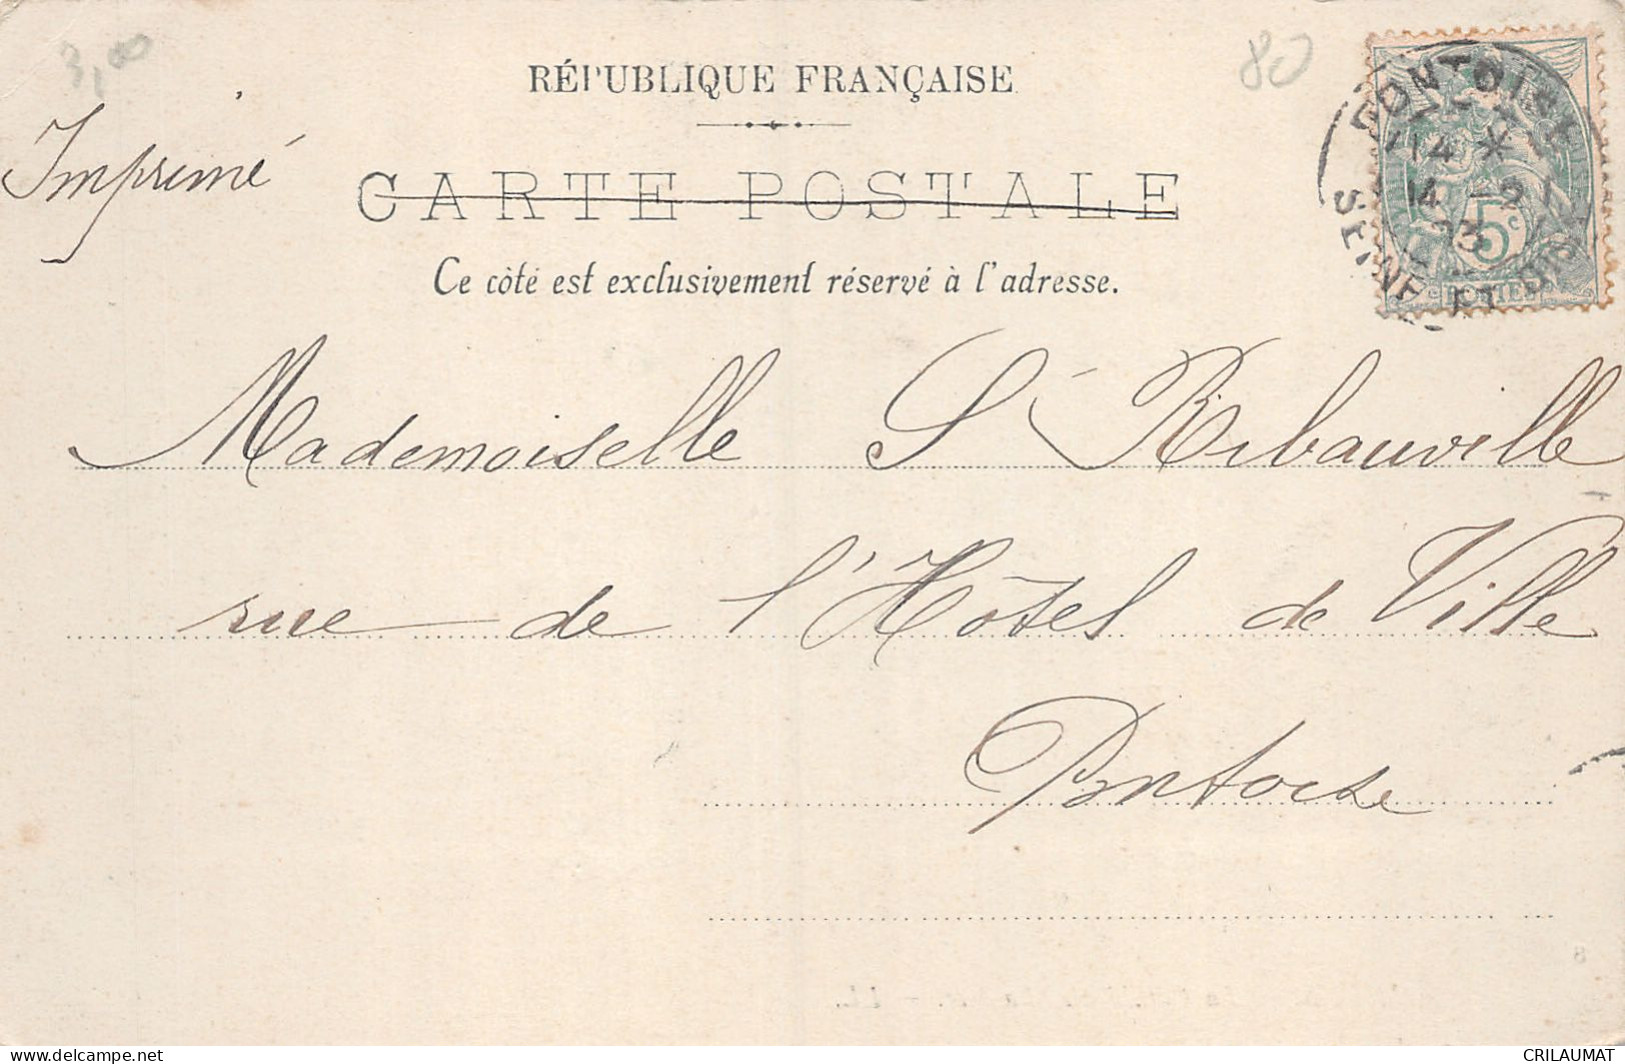 3,00
80
RÉPUBLIQUE FRANÇAISE
Imprimé
CARTE POSTALE
Ce côté est exclusivement réservé à l'adresse.
PONTOISE
14 *
14 -2
03
SEINE-ET-OISE
5c
POSTES
Mademoiselle S Ribauville
rue de l'Hôtel de Ville
Pontoise
CRILAUMAT